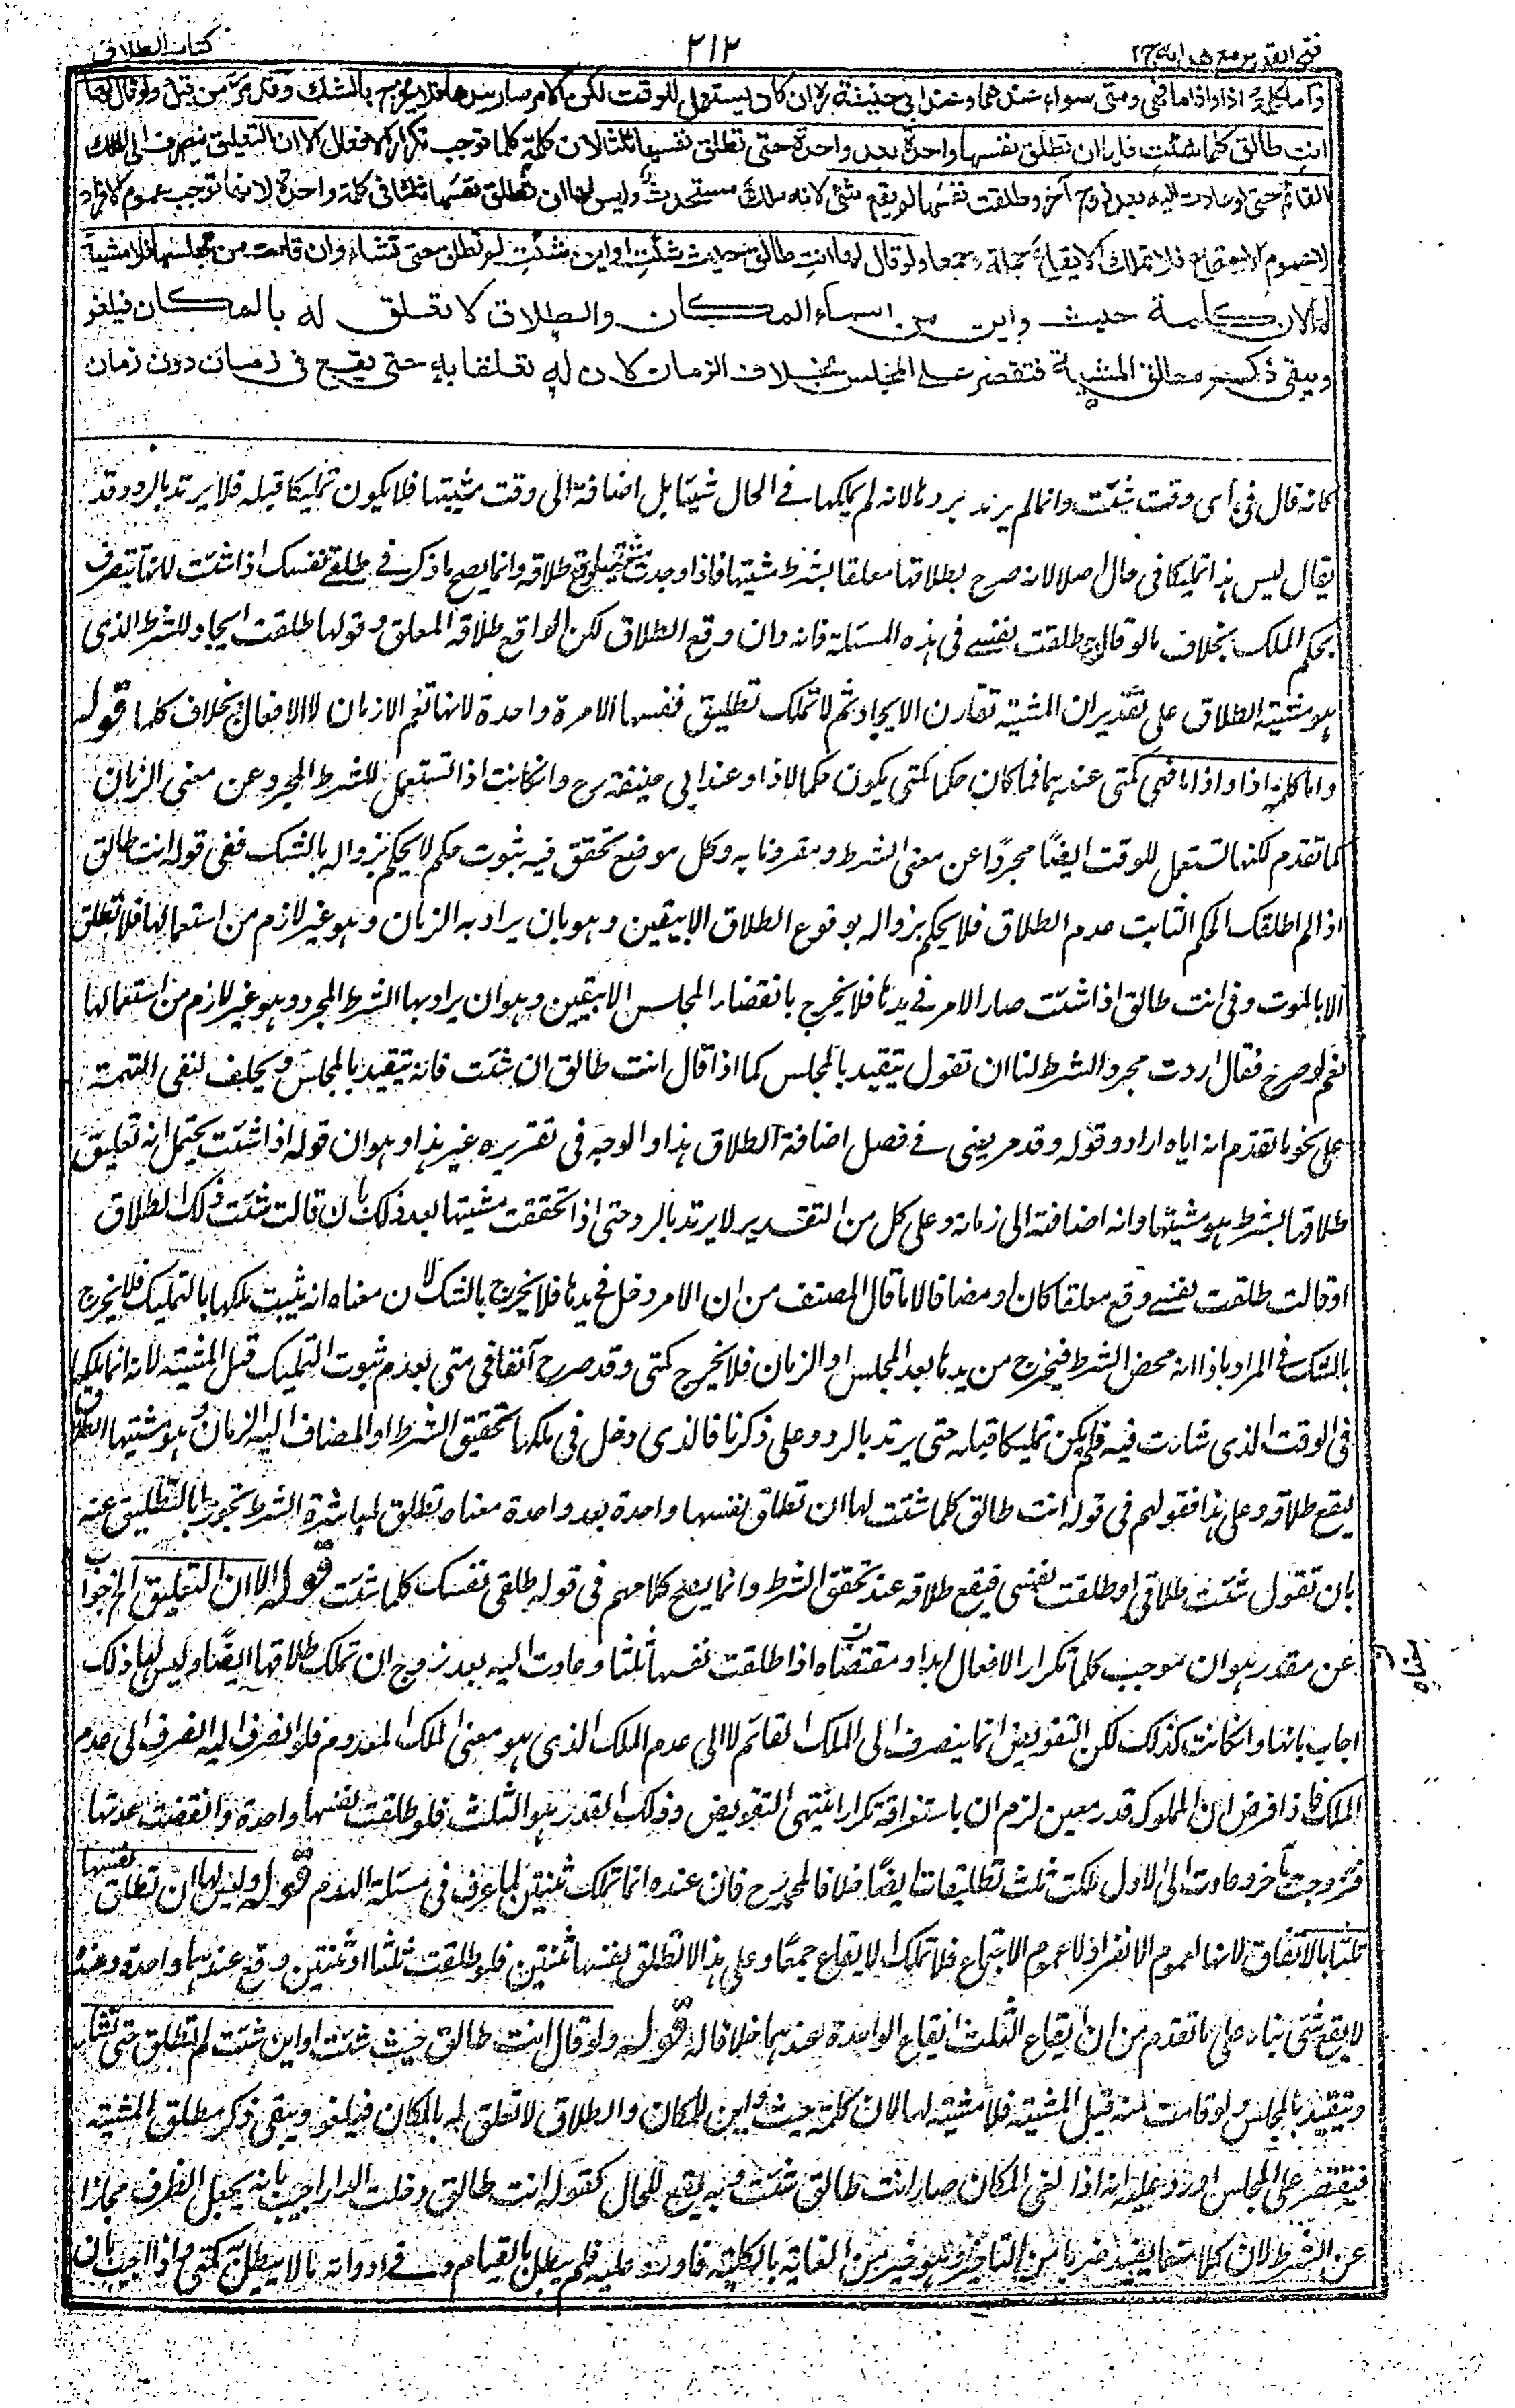 فتح القدير مع هدايه ج٢ ٢١٢ كتاب الطلاق
وأما كلمة اذا واذا ما فهى ومتى سواء عندهما وعند ابى حنيفة رح ان كان يستعمل للوقت لكن الامر صار بيدها فلا يخرج بالشك وقد مر من قبل ولو قال لها
انت طالق كلما شئت فلها ان تطلق نفسها واحدة بعد واحدة حتى تطلق نفسها ثلثا لان كلمة كلما توجب تكرار الافعال الا ان التعليق ينصرف الى الملك
القائم حتى لو عادت اليه بعد زوج آخر وطلقت نفسها لم يقع شئ لانه ملك مستحدث وليس لها ان تطلق نفسها ثلثا فى كلمة واحدة لانها توجب عموم الافراد
لا عموم الاجتماع فلا تملك الايقاع جملة وجمعا ولو قال لها انت طالق حيث شئت او اين شئت لم تطلق حتى تشاء وان قامت من مجلسها فلا مشية
لها لان كلمة حيث واين من اسماء المكان والطلاق لا تعلق له بالمكان فيلغو
ويبقى ذكر مطلق المشية فتقتصر على المجلس بخلاف الزمان لان له تعلقا به حتى يقع فى زمان دون زمان
كانه قال فى اى وقت شئت وانما لم يرتد بردها لانه لم يملكها فى الحال شيئا بل اضافة الى وقت مشيتها فلا يكون تمليكا قبله فلا يرتد بالرد وقد
يقال ليس هذا تمليكا فى حال اصلا لانه صرح بطلاقها معلقا بشرط مشيتها فاذا وجدت مشيتها وقع طلاقه وانما يصح ما ذكر فى طلقى نفسك اذا شئت لانها تتصرف
بحكم الملك بخلاف ما لو قالت طلقت نفسى فى هذه المسئلة فانه وان وقع الطلاق لكن الواقع طلاقه المعلق وقولها طلقت ايجاد للشرط الذى
هو مشية الطلاق على تقدير ان المشية تقارن الايجاد ثم لا تملك تطليق نفسها الا مرة واحدة لانها تعم الازمان لا الافعال بخلاف كلما قوله
واما كلمة اذا واذا ما فهى كمتى عندهما فما كان حكما كمتى يكون حكما لاذا وعند ابى حنيفة رح وان كانت اذا تستعمل للشرط المجرد عن معنى الزمان
كما تقدم لكنها تستعمل للوقت ايضًا مجردًا عن معنى الشرط ومقرونا به وكل موضع تحقق فيه ثبوت حكم لا يحكم بزواله بالشك ففى قوله انت طالق
اذا لم اطلقك الحكم الثابت عدم الطلاق فلا يحكم بزواله بوقوع الطلاق الا بيقين وهو بان يراد به الزمان وهو غير لازم من استعمالها فلا تطلق
الا بالموت وفى انت طالق اذا شئت صار الامر فى يدها فلا يخرج بانقضاء المجلس الا بيقين وهو ان يراد بها الشرط المجرد وهو غير لازم من استعمالها
نعم لو صرح فقال اردت مجرد الشرط لنا ان نقول يتقيد بالمجلس كما اذا قال انت طالق ان شئت فانه يتقيد بالمجلس ويحلف لنفى التهمة
على نحو ما تقدم انه اياه اراد وقوله وقد مر يعنى فى فصل اضافة الطلاق هذا والوجه فى تقريره غير هذا وهو ان قوله اذا شئت يحتمل انه تعليق
طلاقها بشرط هو مشيتها وانه اضافة الى زمانه وعلى كل من التقدير لا يرتد بالرد حتى اذا تحققت مشيتها بعد ذلك بان قالت شئت ذلك الطلاق
او قالت طلقت نفسى وقع معلقا كان او مضافا لا ما قال المصنف من ان الامر دخل فى يدها فلا يخرج بالشك لان معناه انه يثبت ملكها بالتمليك فلا يخرج
بالشك فى المراد باذا انه محض الشرط فيخرج من يدها بعد المجلس او الزمان فلا يخرج كمتى وقد صرح آنفا فى متى بعدم ثبوت التمليك قبل المشية لانه انما ملكها
فى الوقت الذى شاءت فيه فلم يكن تمليكا قبله حتى يرتد بالرد وعلى ذكرنا فالذى دخل فى ملكها تحقيق الشرط او المضاف اليه الزمان وهو مشيتها الطلاق
ليقع طلاقه وعلى هذا فقولهم فى قوله انت طالق كلما شئت لها ان تطلق نفسها واحدة بعد واحدة معناه تطلق لمباشرة الشرط تجوزا بالتطليق عنه
بان تقول شئت طلاقى او طلقت نفسى فيقع طلاقه عند تحقق الشرط وانما يصح كلامهم فى قوله طلقى نفسك كلما شئت قوله الا ان التعليق الخ جواب
عن مقدر هو ان موجب كلما تكرار الافعال ابدا ومقتضاه اذا طلقت نفسها ثلثا وعادت اليه بعد زوج ان تملك طلاقها ايضًا وليس لها ذلك
اجاب بانها وان كانت كذلك لكن التفويض انما ينصرف الى الملك القائم لا الى عدم الملك الذى هو معنى الملك المعدوم فلو انصرف اليه انصرف الى عدم
الملك فاذا فرض ان المملوك قدر معين لزم ان باستغراقه تكرار ينتهى التفويض وذلك القدر هو الثلث فلو طلقت نفسها واحدة وانقضت عدتها
فتزوجت بآخر وعادت الى الاول ملكت ثلث تطليقات ايضًا خلافا لمحمد رح فان عنده انما تملك ثنتين لما عرف فى مسئلة الهدم قوله وليس لها ان تطلق نفسها
ثلثا بالاتفاق لانها لعموم الانفراد لا عموم الاجتماع فلا تملك الايقاع جمعًا وعلى هذا لا تطلق نفسها ثنتين فلو طلقت ثلثا او ثنتين وقع عندهما واحدة وعنده
لا يقع شئ بناء على ما تقدم من ان ايقاع الثلث ايقاع الواحدة عندهما خلافا له قوله ولو قال انت طالق حيث شئت او اين شئت لم تطلق حتى تشاء
ويتقيد بالمجلس ولو قامت منه قبل المشية فلا مشية لها لان كلمة حيث واين للمكان والطلاق لا تعلق له بالمكان فيلغو ويبقى ذكر مطلق المشية
فيقتصر على المجلس اورد عليه انه اذا لغى المكان صار انت طالق شئت وبه يقع للحال كقوله انت طالق دخلت الدار اجيب بانه يجعل الظرف مجازا
عن الشرط لان كلا منهما يفيد ضربا من التاخير وهو خير من الغائه بالكلية فاورد عليه فلم يبطل بالقيام وفى ادواته ما لا يبطل به كمتى واذا اجيب بان